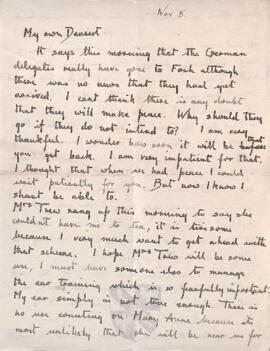 Nov 8.
My own Dearest
It says this morning that the German
delegates really have gone to Foch although
there was no news that they had yet
arrived. I cant think there is any doubt
that they will make peace. Why should they
go if they do not intend to? I am very
thankful. I wonder how soon it will be that
you get back. I am very impatient for that.
I thought that when we had peace I could
wait patiently for you. But now I know I
shant be able to.
Mrs Trew rang up this morning to say she
couldnt have me to tea, it is tiresome
because I very much want to get ahead with
that scheme. I hope Mrs Trew will be some
use, I must have someone else to manage
the ear training which is so fearfully important.
My ear simply is not true enough. There is
no use counting on Mary Anne because its
most unlikely that she will be near us for